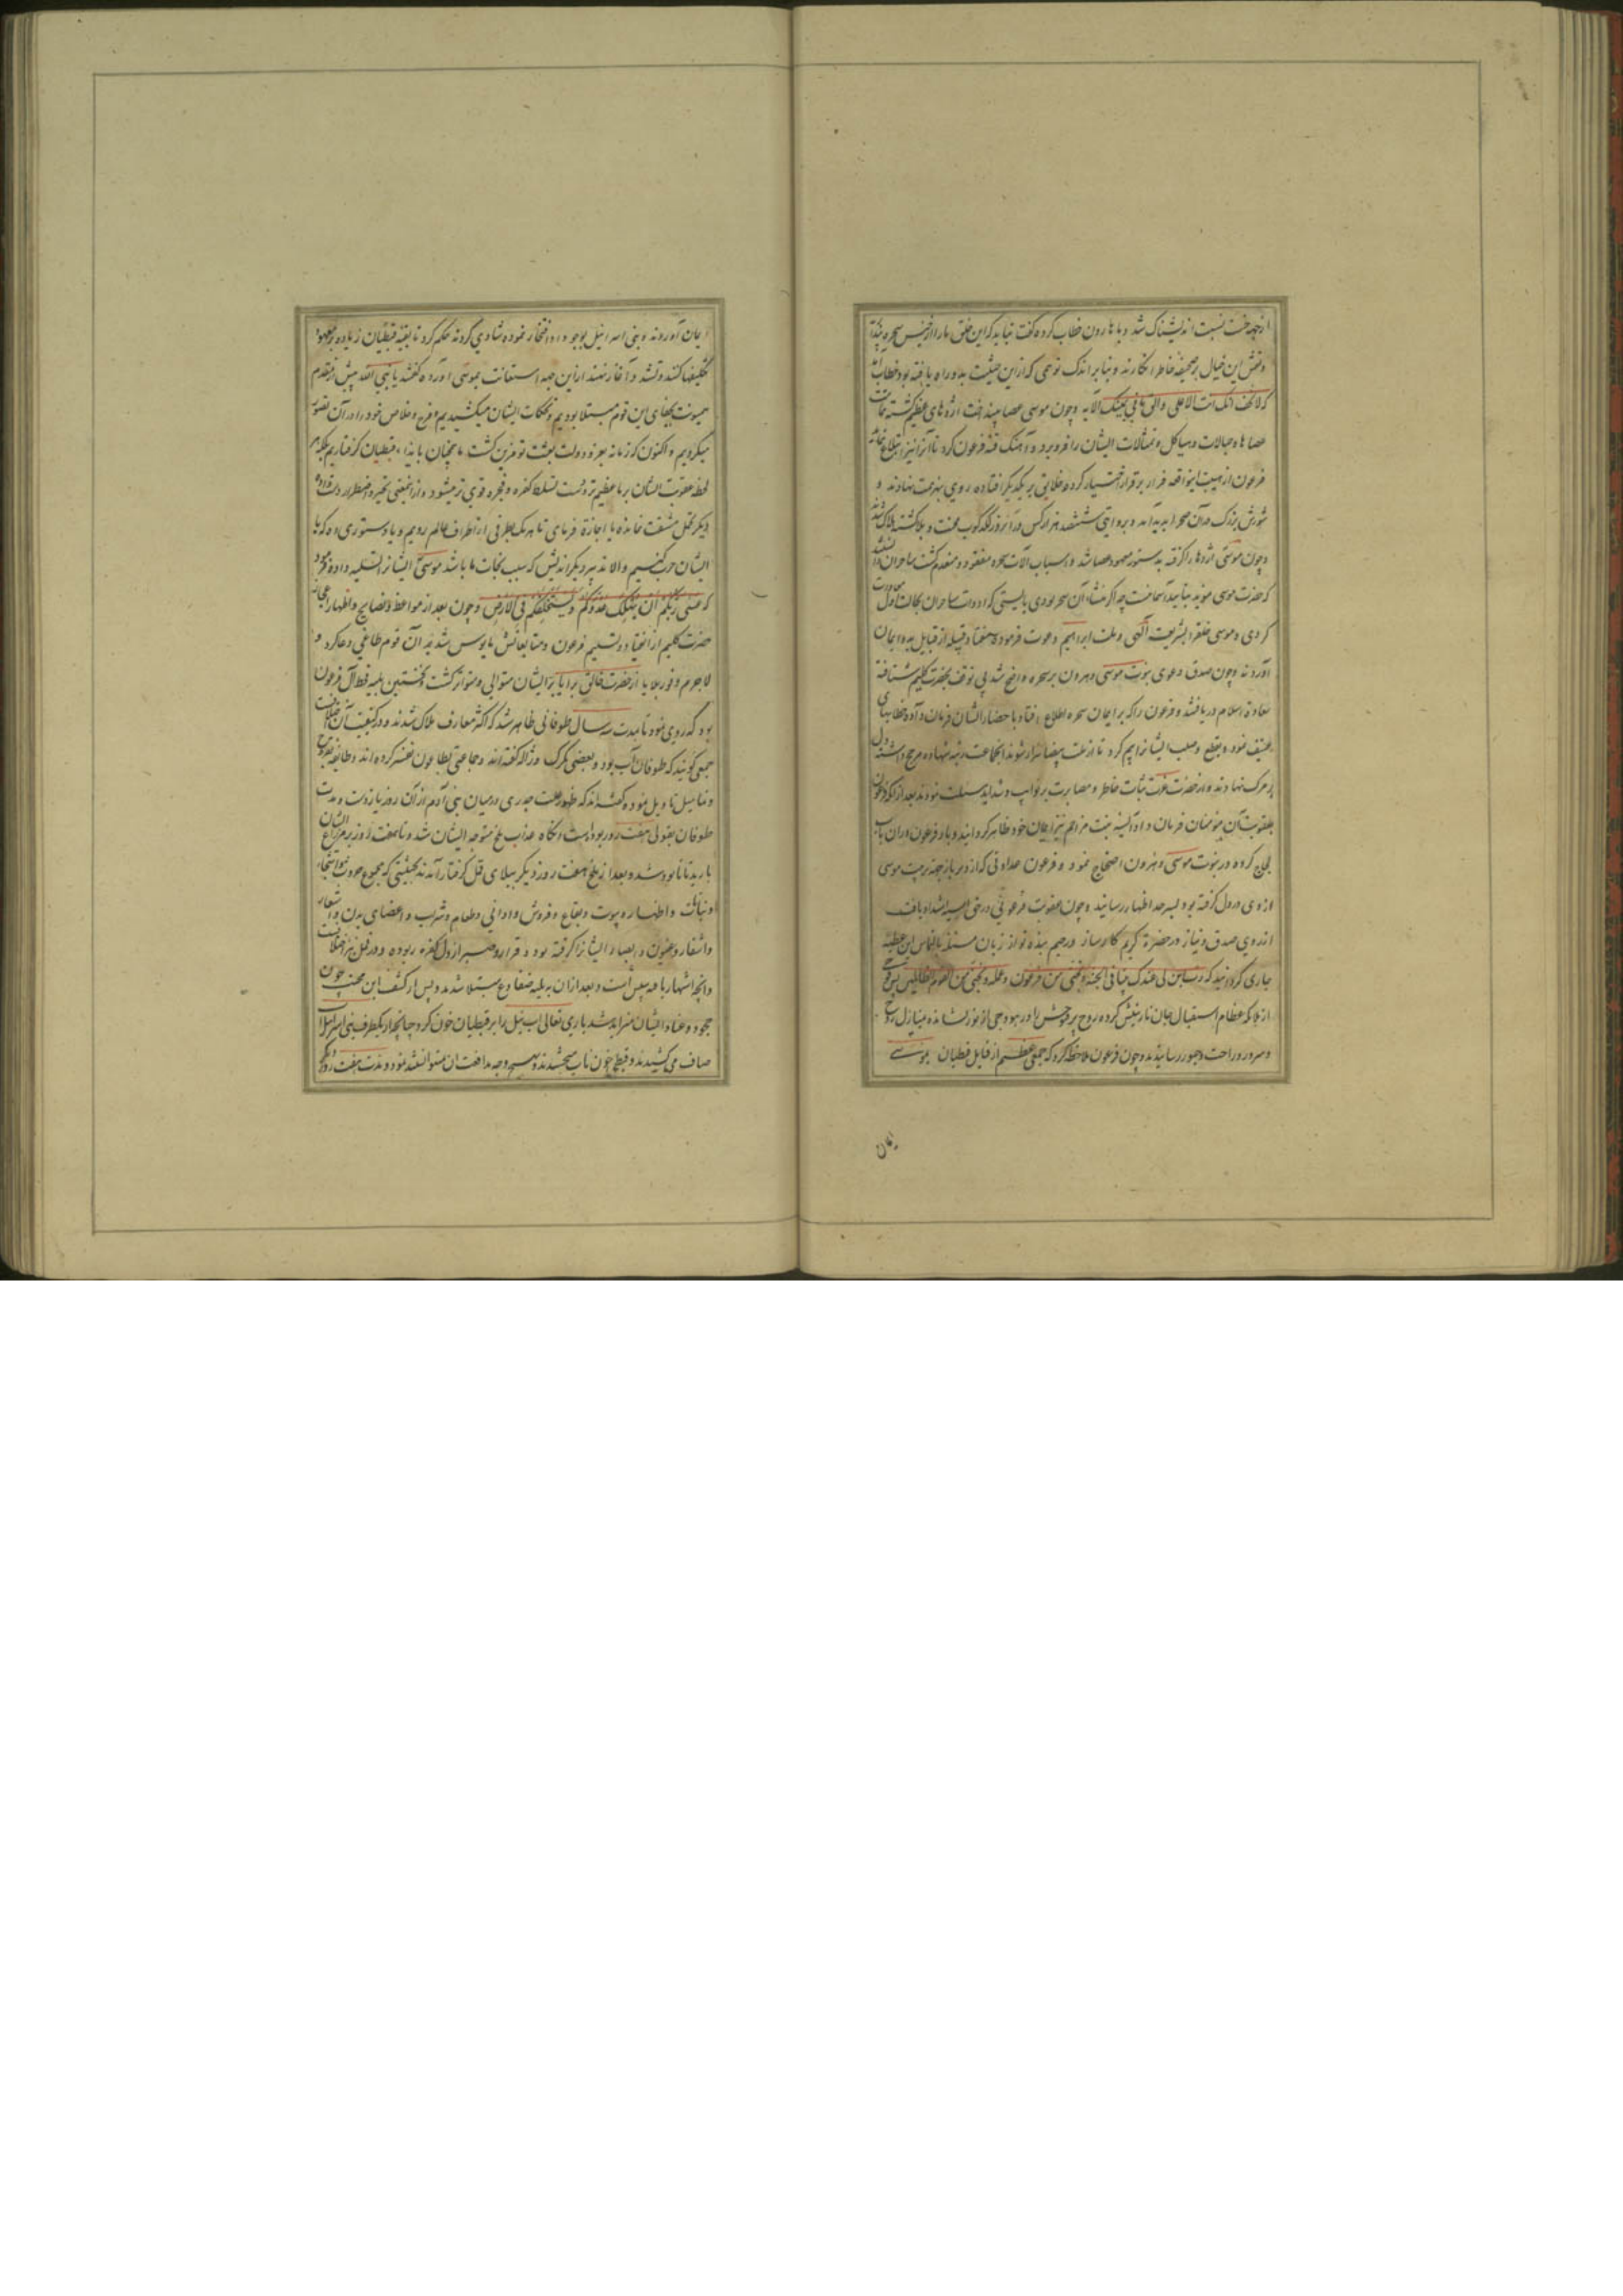 از جهة خفت نسبت اندیشناک شد و با هارون خطاب کرده گفت نباید که این خلق ما را از جنس سحره پندا
و نقش این خیال بر صحیفه خاطر انگارند و بنابر اندک توهمی که از این حیثیت بدو راه یافته بود خطاب آمد
که لاتخف انک انت الاعلی والق مافی یمینک الآیه و چون موسی عصا بینداخت اژدهای عظیم گشته تمامت
عصاها و حبالات و هیاکل و تمثالات ایشان را فرو برد و آهنگ قبه فرعون کرد تا آنرا نیز ابتلاع نماید
فرعون از هیبت این واقعه فرار بر قرار اختیار کرده خلایق بر یکدیگر افتاده روی بهزیمت نهادند و
شورش بزرگ در آن صحرا پدید آمد و بروایتی ششصد هزار کس در آنروز لگدکوب محنت و بلا گشته هلاک شدند
و چون موسی اژدها را گرفته بدستور معهود عصا شد و اسباب و آلات سحره مفقود و منعدم گشت ساحران دانستند
که حضرت موسی مؤید بتایید آسمانیست چه اگر منشاء آن سحر بودی بایستی که ادوات ساحران بحالت اول معاودت
کردی و موسی خلق را بشریعت آلهی و ملت ابراهیم دعوت فرموده هفتاد قبیله از قبایل بدو ایمان
آوردند و چون صدق دعوی نبوت موسی و هرون بر سحره واضح شد بی توقف بحضرت کلیم شتافته
سعادة اسلام دریافتند و فرعون را که بر ایمان سحره اطلاع افتاد باحضار ایشان فرمان داده خطابهای
عنیف نمود و بقطع و صلب ایشانرا بیم کرد تا از ملت بیضا بیزار شوند آنجماعت رتبه شهاده مرجح داشته دل
بر مرک نهادند و از حضرت عزت ثبات خاطر و مصابرت بر نوایب و شداید مسئلت نمودند بعد از آنکه فرعون
بعقوبت آن مؤمنان فرمان داد آسیه بنت مزاحم نیز ایمان خود ظاهر گردانید و با فرعون در آن باب
لجاج کرده در نبوت موسی و هرون احتجاج نمود و فرعون عداوتی که از دیرباز جهة تربیت موسی
از وی در دل گرفته بود بسرحد اظهار رسانید و چون عقوبت فرعونی در حق آسیه اشتداد یافت
از روی صدق و نیاز در حضرة کریم کارساز و رحیم بنده نواز زبان مسئلة بالتماس این عطیه
جاری گردانید که رب ابن لی عندک بیتا فی الجنة و نجنی من فرعون و عمله و نجنی من القوم الظالمین پس فوجی
از ملائکه عظام استقبال جان نازنینش کرده روح پر فتوحش را در هودجی از نور نشانده بمنازل روح
و سرور و راحت و حبور رسانیدند و چون فرعون ملاحظه کرد که جمعی عظیم از قبایل قبطیان بموسی
ایمان
ایمان آوردند و بنی اسرائیل بوجود او افتخار نموده شادی کردند حکم کرد تا بقیه قبطیان زیاده بر معهود
تکلیفها کنند و تشدد آغاز نهند از این جهه استغاثت بموسی آورده گفتند یا نبی الله پیش از مقدم
میمونت بجفای این قوم مبتلا بودیم و تحکمات ایشان میکشیدیم و فرج و خلاص خود را در آن تصور
میکردیم و اکنون که زمانه بعز و دولت بعثت تو مزین گشت ما همچنان بایذاء قبطیان گرفتاریم بلکه هر
لحظه عقوبت ایشان بر ما عظیم تر و دست تسلط کفره و فجره قوی تر میشود و از اینمعنی تحیر و اضطرار دست داده
دیگر تحمل مشقت نمانده یا اجازة فرمای تا هر یک بطرفی از اطراف عالم رویم و یا دستوری ده که با
ایشان حرب کنیم و الا تدبیر دیگر اندیش که سبب نجات ما باشد موسی ایشانرا تسلیه داده فرمود
که عسی ربکم ان یهلک عدوکم و یستخلفکم فی الارض و چون بعد از مواعظ و نصایح و اظهار اعجاز
حضرت کلیم از انقیاد و تسلیم فرعون و متابعانش مأیوس شد بر آن قوم طاغی دعا کرد و
لاجرم وفور بلایا از حضرت خالق برایا بر ایشان متوالی و متواتر گشت و نخستین بلیه قحط آل فرعون
بود که روی نمود تا مدت سه سال طوفانی ظاهر شد که اکثر معارف هلاک شدند و در کیفیت آن اختلافست
جمعی گویند که طوفان آب بود و بعضی بتگرک و ژاله گفته‌اند و جماعتی بطاعون تفسیر کرده‌اند و طایفه بقروح
و تمامیل تأویل نموده گفته‌اند که ظهور علت جدری در میان بنی آدم از آن روز باز است و مدت
طوفان بقولی هفت روز بوده است و آنگاه عذاب ملخ متوجه ایشان شد و تا هفت روز بر مزارع ایشان
بارید تا نابود شد و بعد از ملخ هفت روز دیگر ببلای قمل گرفتار آمدند بحیثیتی که مجموع حبوب و اشجار
و نباتات و اطهار و بیوت و بقاع و فروش و اوانی و طعام و شراب و اعضای بدن و اشعار
و اشفار و عیون و ابصار ایشانرا گرفته بود و قرار و صبر از دل کفره ربوده و در قمل نیز اختلافست
و آنچه اشتهار یافته سپس است و بعد از آن ببلیه ضفادع مبتلا شدند و پس از کشف این محنت چون
جحود و عناد ایشان متزاید شد باری تعالی آب نیل را بر قبطیان خون کرد چنانچه از یکطرف بنی اسرائیل آب
صاف می کشیدند و قبطی خون ناب میچشیدند و بهیچ وجه مدافعت آن نتوانستند نمود و مدت هفت روز دیگر